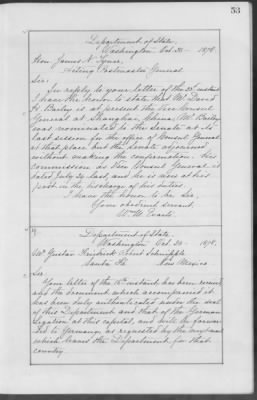 53
Department of State,
Washington Oct. 30 - 1878.
Hon. James N. Tyner,
Acting Postmaster General.
Sir:
In reply to your letter of the 23d instant
I have the honor to state that Mr. David
H. Bailey is at present the Vice Consul
General at Shanghai, China. Mr. Bailey
was nominated to the Senate at its
last session for the office of Consul General
at that place but the Senate adjourned
without making the confirmation. His
commission as Vice Consul General is
dated July 24 last, and he is now at his
post in the discharge of his duties.
I have the honor to be, Sir,
Your obedient servant,
Wm. M. Evarts.
Department of State.
Washington Oct. 30 - 1878.
Mr Gustav Friedrich Ernst Schnepple
Santa Fé New Mexico
Sir
Your letter of the instant, has been received
and the document which accompanied it
has been duly authenticated under the seal
of this Department and that of the German
Legation at this capital, and will be forwar-
ded to Germany as requested by the next mail
which leaves the Department for that
country.